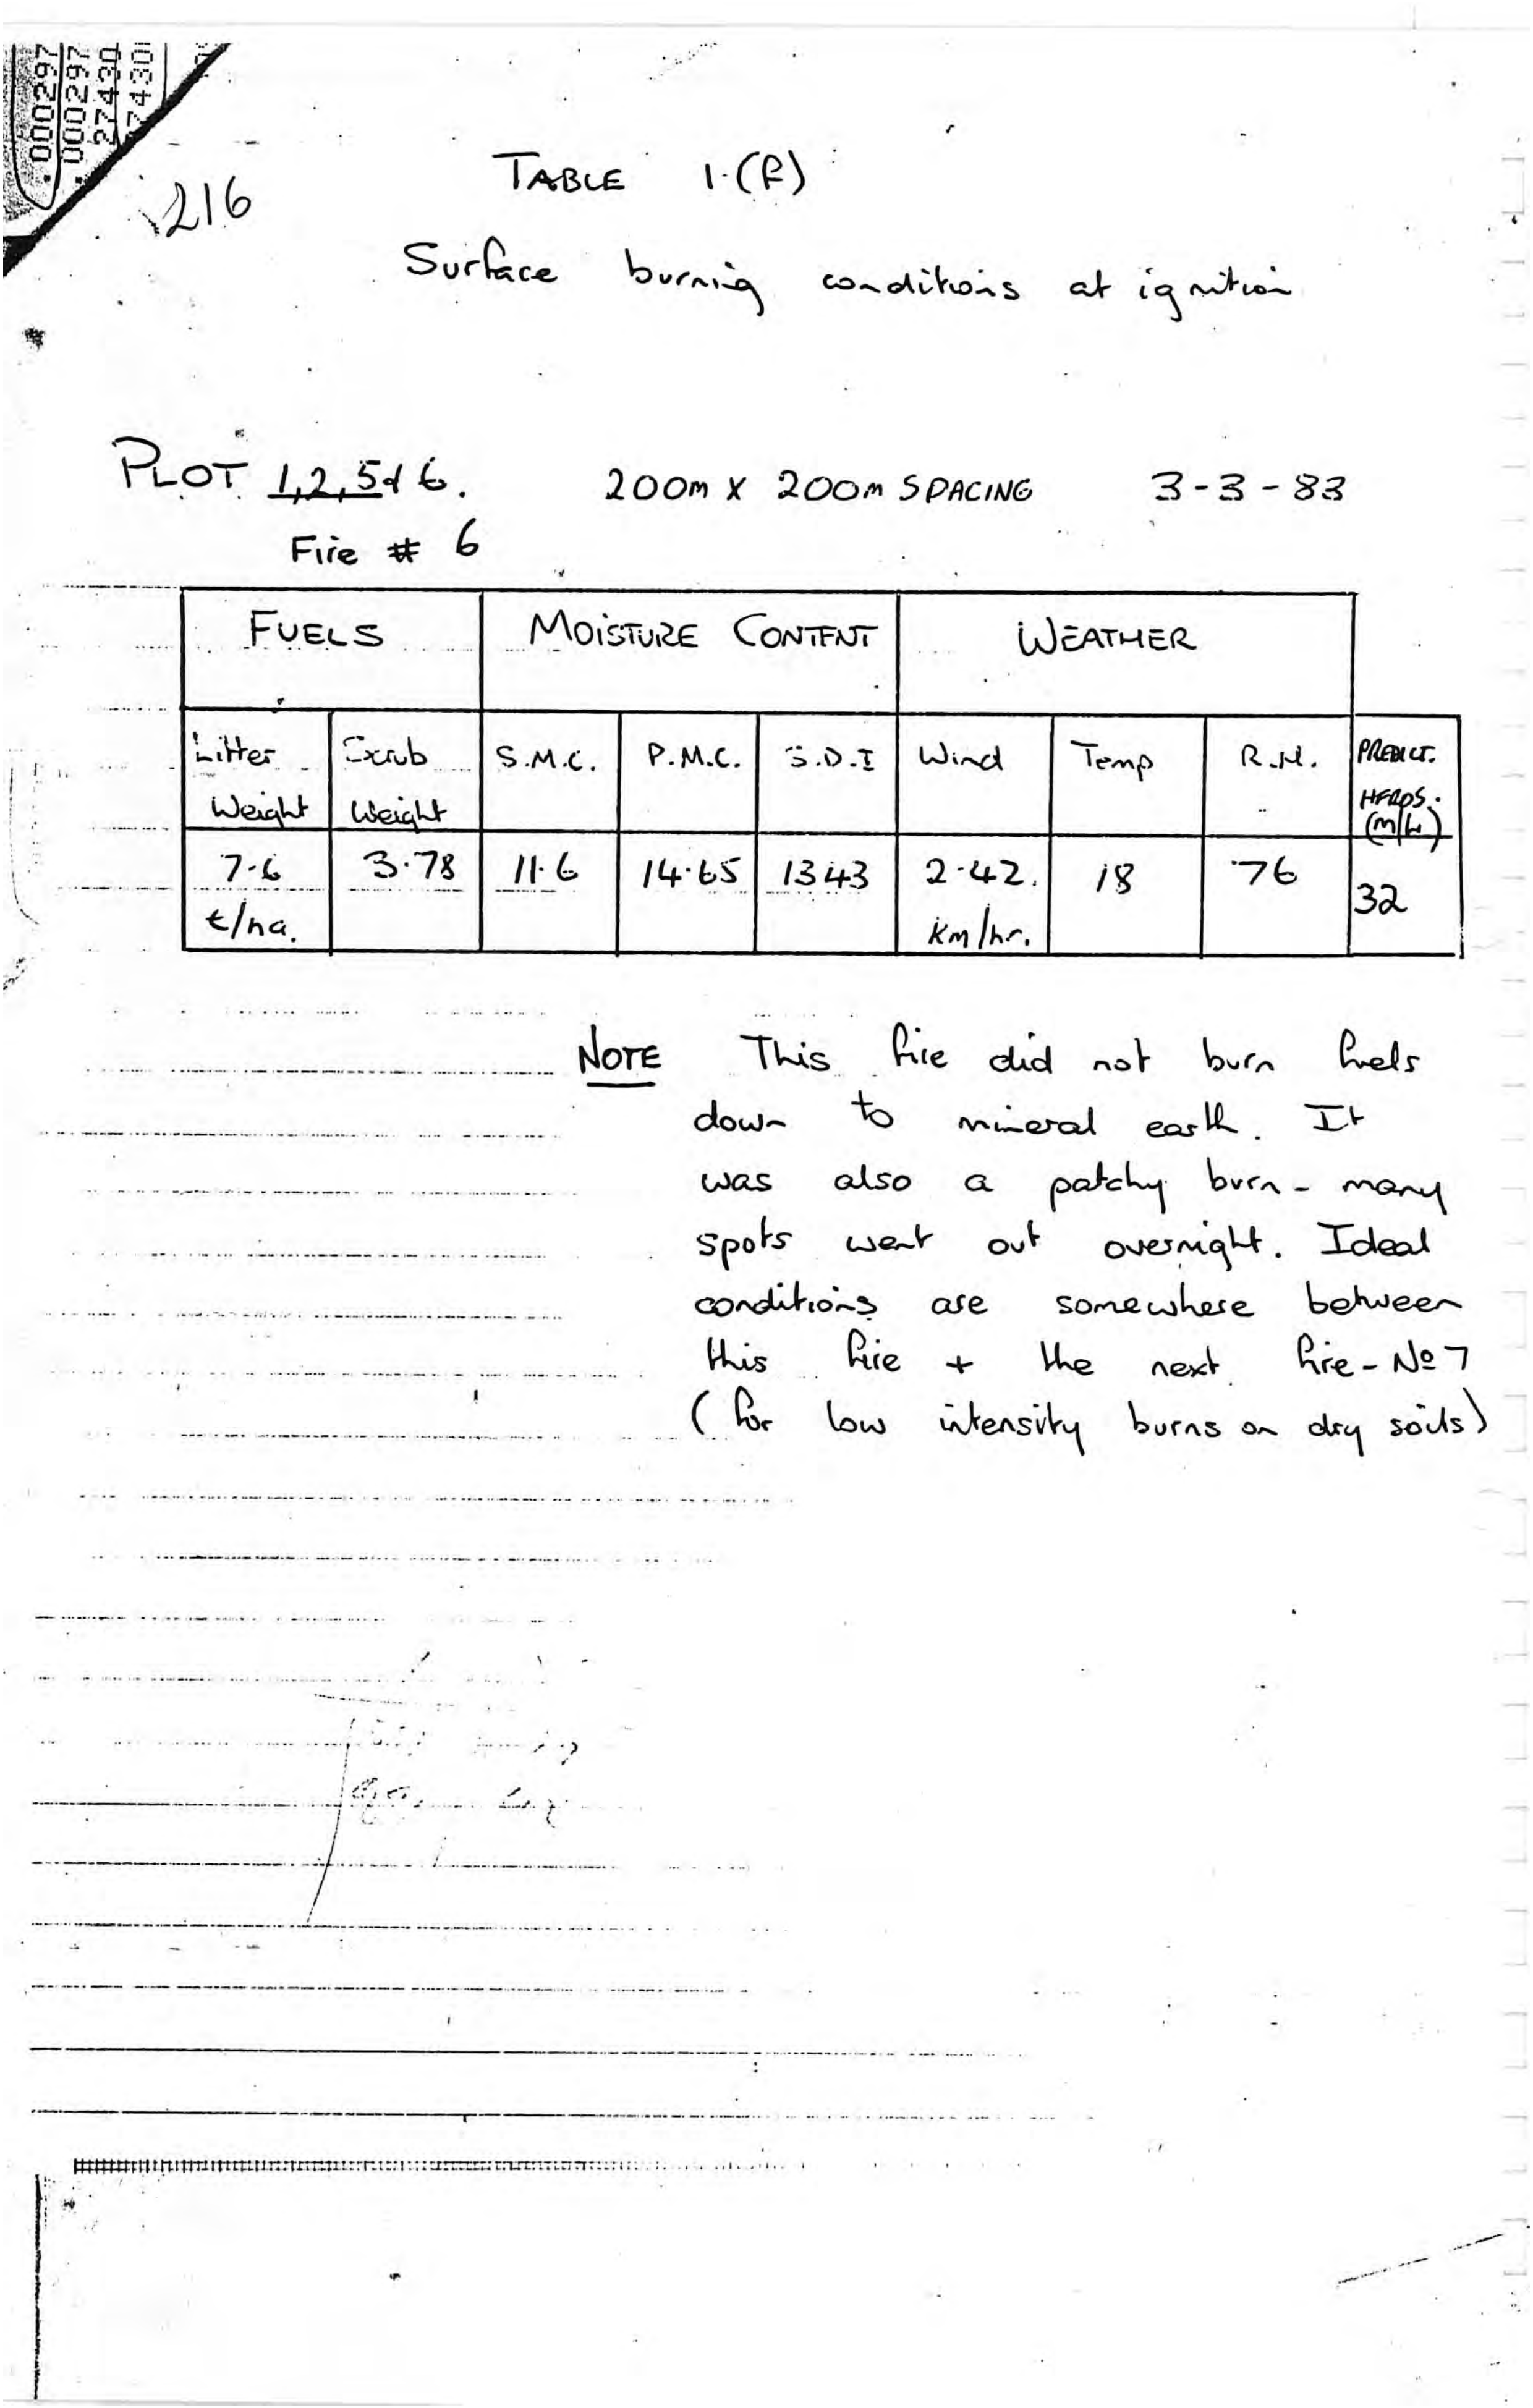 000297
000297
27430
27430
216
TABLE 1.(f)
Surface burning conditions at ignition
PLOT 1,2,5 & 6. 200m X 200m SPACING 3-3-83
Fire # 6
FUELS MOISTURE CONTENT WEATHER
Litter Weight Scrub Weight S.M.C. P.M.C. S.D.I Wind Temp R.H. PREDICT. HFROS. (m/h)
7.6 t/ha. 3.78 11.6 14.65 1343 2.42. km/hr. 18 76 32
NOTE This fire did not burn fuels
down to mineral earth. It
was also a patchy burn - many
spots went out overnight. Ideal
conditions are somewhere between
this fire + the next fire - No 7
(for low intensity burns on dry soils)